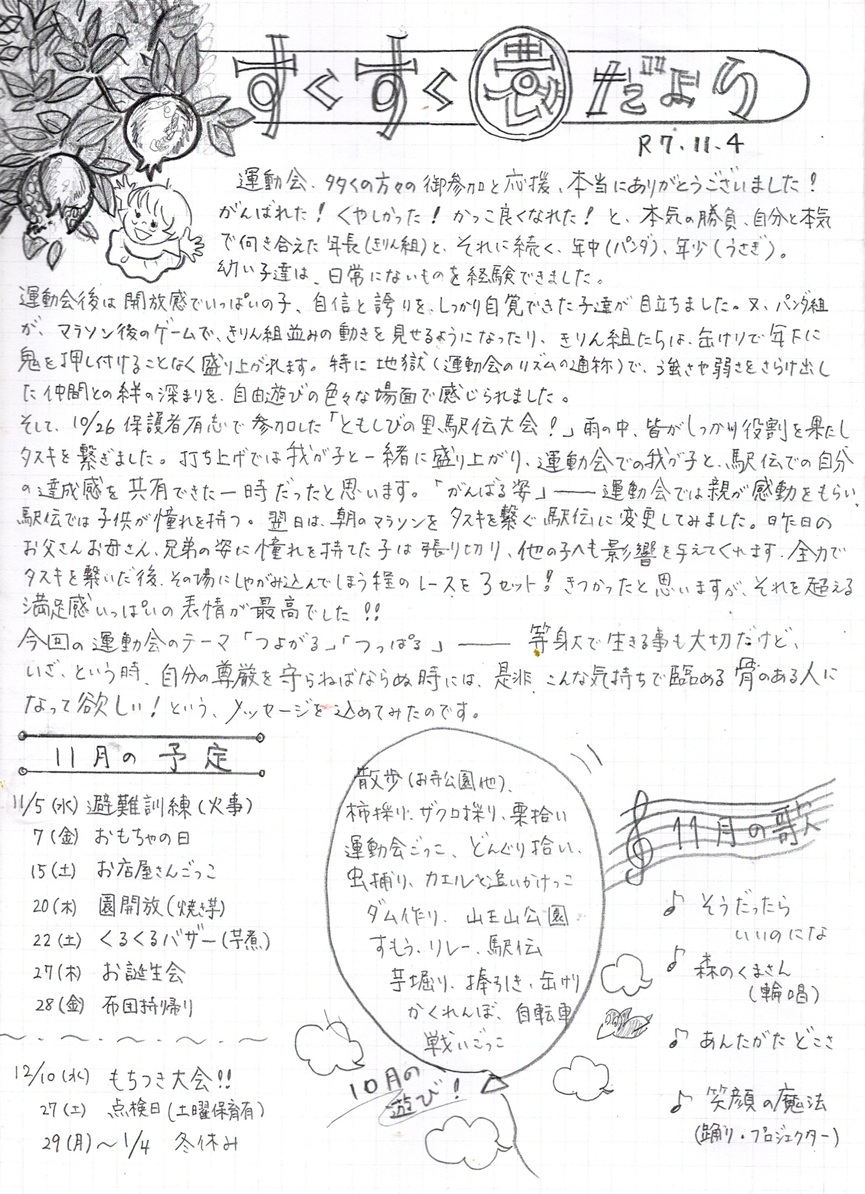 すくすく夢だより
R7.11.4
運動会、多くの方々の御参加と応援、本当にありがとうございました!
がんばれた! くやしかった! かっこ良くなれた! と、本気の勝負、自分と本気
で向き合えた年長(きりん組)と、それに続く、年中(パンダ)、年少(うさぎ)。
幼い子達は、日常にないものを経験できました。
運動会後は開放感でいっぱいの子、自信と誇りを、しっかり自覚できた子達が目立ちました。又、パンダ組
が、マラソン後のゲームで、きりん組並みの動きを見せるようになったり、きりん組たちは、缶けりで年下に
鬼を押し付けることなく盛り上がれます。特に地獄(運動会のリズムの通称)で、強さや弱さをさらけ出し
た仲間との絆の深まりを、自由遊びの色々な場面で感じられました。
そして、10/26 保護者有志で参加した「ともしびの里駅伝大会!」雨の中、皆がしっかり役割を果たし
タスキを繋ぎました。打ち上げでは我が子と一緒に盛り上がり、運動会での我が子と、駅伝での自分
の達成感を共有できた一時だったと思います。「がんばる姿」―― 運動会では親が感動をもらい、
駅伝では子供が憧れを持つ。翌日は、朝のマラソンをタスキを繋ぐ駅伝に変更してみました。昨日の
お父さんお母さん、兄弟の姿に憧れを持てた子は張り切り、他の子へも影響を与えてくれます。全力で
タスキを繋いだ後、その場にしゃがみ込んでしまう程のレースを3セット! きつかったと思いますが、それを超える
満足感いっぱいの表情が最高でした!!
今回の運動会のテーマ「つよがる」「つっぱる」―― 等身大で生きる事も大切だけど、
いざ、という時、自分の尊厳を守らねばならぬ時には、是非、こんな気持ちで臨める骨のある人に
なって欲しい! という、メッセージを込めてみたのです。
11月の予定
11/5(水) 避難訓練(火事)
7(金) おもちゃの日
15(土) お店屋さんごっこ
20(木) 園開放(焼き芋)
22(土) くるくるバザー(芋煮)
27(木) お誕生会
28(金) 布団持帰り
12/10(水) もちつき大会!!
27(土) 点検日(土曜保育有)
29(月)~1/4 冬休み
散歩(お寺公園他)、
柿採り、ザクロ採り、栗拾い
運動会ごっこ、どんぐり拾い、
虫捕り、カエルと追いかけっこ
ダム作り、山王山公園
すもう、リレー、駅伝
芋堀り、棒引き、缶けり
かくれんぼ、自転車
戦いごっこ
10月の
遊び!
11月の歌
♪ そうだったら
いいのにな
♪ 森のくまさん
(輪唱)
♪ あんたがた どこさ
♪ 笑顔の魔法
(踊り・プロジェクター)